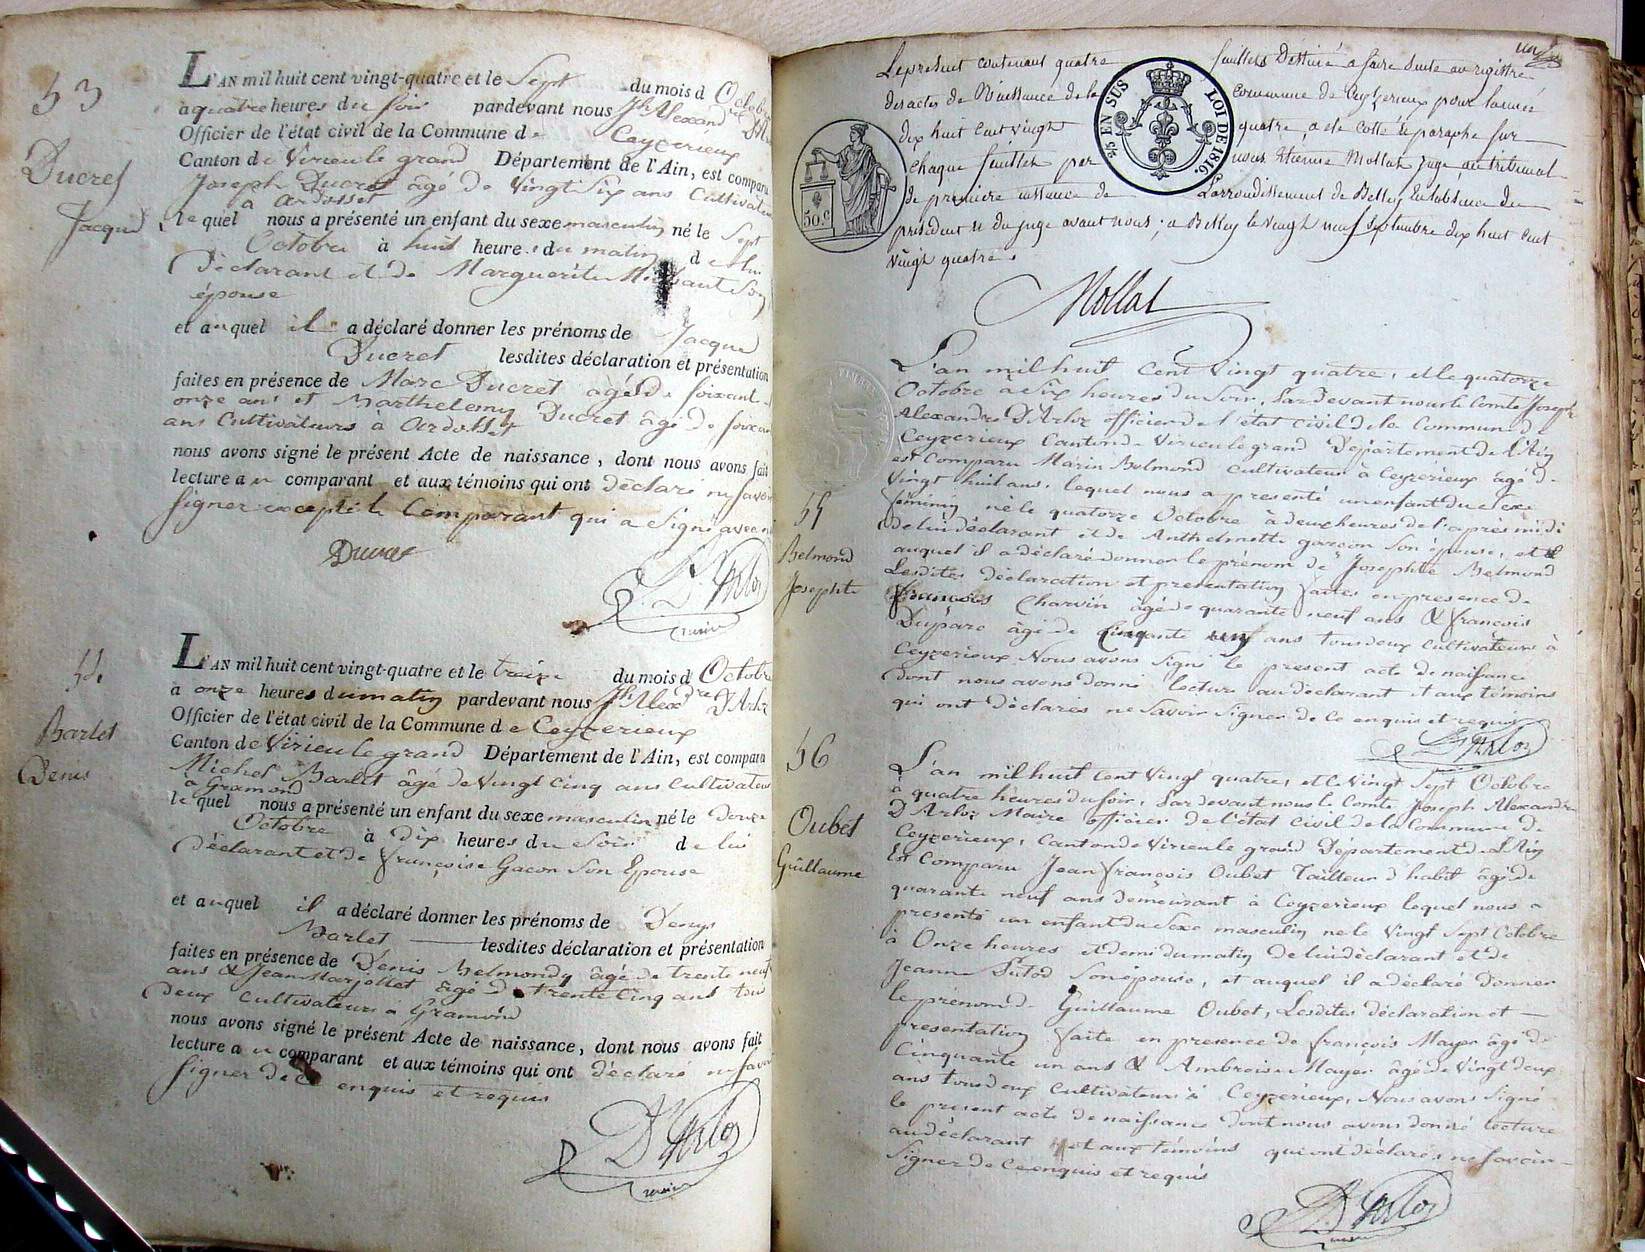 53
Ducret
Jacque
L'AN mil huit cent vingt-quatre et le Sept du mois d Octobre
a quatre heures du soir pardevant nous Jh Alexandre
Officier de l'état civil de la Commune de Ceyzerieux
Canton de Virieu le grand Département de l'Ain, est comparu
Joseph Ducret âgé de Vingt Six ans Cultivateur
à ardosset
le quel nous a présenté un enfant du sexe masculin né le Sept
Octobre à huit heures du matin de lui
déclarant et de Marguerite son
épouse
et auquel il a déclaré donner les prénoms de Jacque
Ducret lesdites déclaration et présentation
faites en présence de Marc Ducret agé de soixante
onze ans et Barthelemy Ducret âgé de soixante
ans Cultivateurs à ardosset
nous avons signé le présent Acte de naissance, dont nous avons fait
lecture au comparant et aux témoins qui ont déclaré ne savoir
signer excepté le Comparant qui a signé avec
Ducret
D'Arloz
maire
54
Barlet
Denis
L'AN mil huit cent vingt-quatre et le treize du mois d Octobre
à onze heures du matin pardevant nous Jh Alexdre D'Arloz
Officier de l'état civil de la Commune de Ceyzerieux
Canton de Virieu le grand Département de l'Ain, est comparu
Michel Barlet âgé de Vingt Cinq ans Cultivateur
à Gramond
le quel nous a présenté un enfant du sexe masculin né le Douze
Octobre à Dix heures du Soir de lui
déclarant et de françoise Gacon Son Epouse
et auquel il a déclaré donner les prénoms de Denys
Barlet lesdites déclaration et présentation
faites en présence de Denis Belmondy âgé de trente neuf
ans & Jean Marjollet âgé de trente Cinq ans tous
Deux Cultivateurs à Gramond
nous avons signé le présent Acte de naissance, dont nous avons fait
lecture au comparant et aux témoins qui ont déclaré ne savoir
signer de ce enquis et requis
D'Arloz
maire
un
Le présent contenant quatre feuillets Destiné à faire Suite au registre
des actes de Naissance de la commune de Ceyzerieux pour l'année
dix huit cent vingt quatre, a été cotté & paraphé sur
chaque feuillet par nous Etienne Mollat Juge au tribunal
de première instance de L'arrondissement de Belley, En L'absence du
président & du juge avant nous; a Belley le vingt neuf septembre dix huit cent
vingt quatre.
50.c
EN SUS
LOI DE 1816.
Mollat
TIMBRE
L'an mil huit Cent Vingt quatre, et le quatorze
Octobre a Six heures du Soir, Par devant nous le Comte Joseph
Alexandre D'Arloz officier de l'état civil de la Commune de
Ceyzerieux Canton de Virieu le grand Département de l'Ain
est Comparu Marin Belmond Cultivateur à Ceyzerieux âgé de
Vingt huit ans, lequel nous a présenté un enfant du Sexe
féminin né le quatorze Octobre à deux heures de l'après midi
de lui déclarant et de Anthelmette garçon Son épouse, et
auquel il a déclaré donner le prénom de Josephte Belmond
Lesdites déclaration et présentation faites en présence de
françois Charvin âgé de quarante neuf ans & françois
Duparc âgé de Cinquante ans tous deux cultivateurs à
Ceyzerieux, Nous avons Signé le present acte de naissance
dont nous avons donné lecture au déclarant et aux témoins
qui ont déclarés ne Savoir Signer de Ce enquis et requis
55
Belmond
Josephte
D'Arloz
56
Oubet
Guillaume
L'an mil huit Cent Vingt quatre, et le Vingt Sept Octobre
à quatre heures du Soir, Par devant nous le Comte Joseph Alexandre
D'Arloz Maire officier de l'état civil de la Commune de
Ceyzerieux, Canton de Virieu le grand Département de l'Ain
Est Comparu Jean françois Oubet Tailleur d'habit âgé de
quarante neuf ans demeurant à Ceyzerieux lequel nous a
présenté un enfant du Sexe masculin né le Vingt Sept Octobre
à Onze heures et demi du matin de lui déclarant et de
Jeanne Son épouse, et auquel il a déclaré donner
le prénom de Guillaume Oubet, Lesdites déclaration et
présentation faite en présence de françois Mayer âgé de
Cinquante un ans & Ambroise Mayer âgé de Vingt deux
ans tous deux Cultivateurs à Ceyzerieux, Nous avons Signé
le présent acte de naissance dont nous avons donné lecture
au déclarant et aux témoins qui ont déclarés ne Savoir
Signer de Ce enquis et requis
D'Arloz
maire